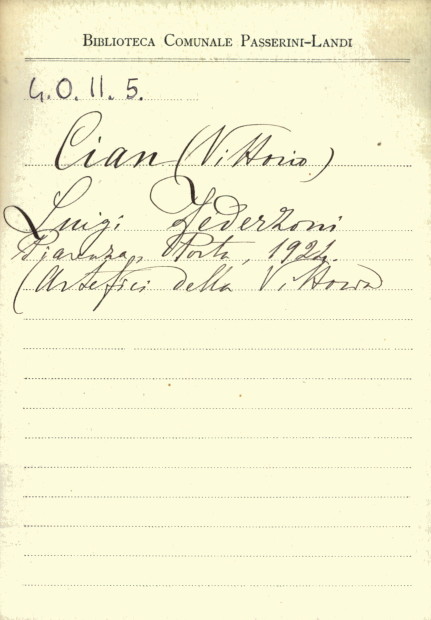 BIBLIOTECA COMUNALE PASSERINI-LANDI
4.O.II.5.
Cian (Vittorio)
Luigi Federzoni
Piacenza, Porta, 1924.
(Artefici della Vittoria